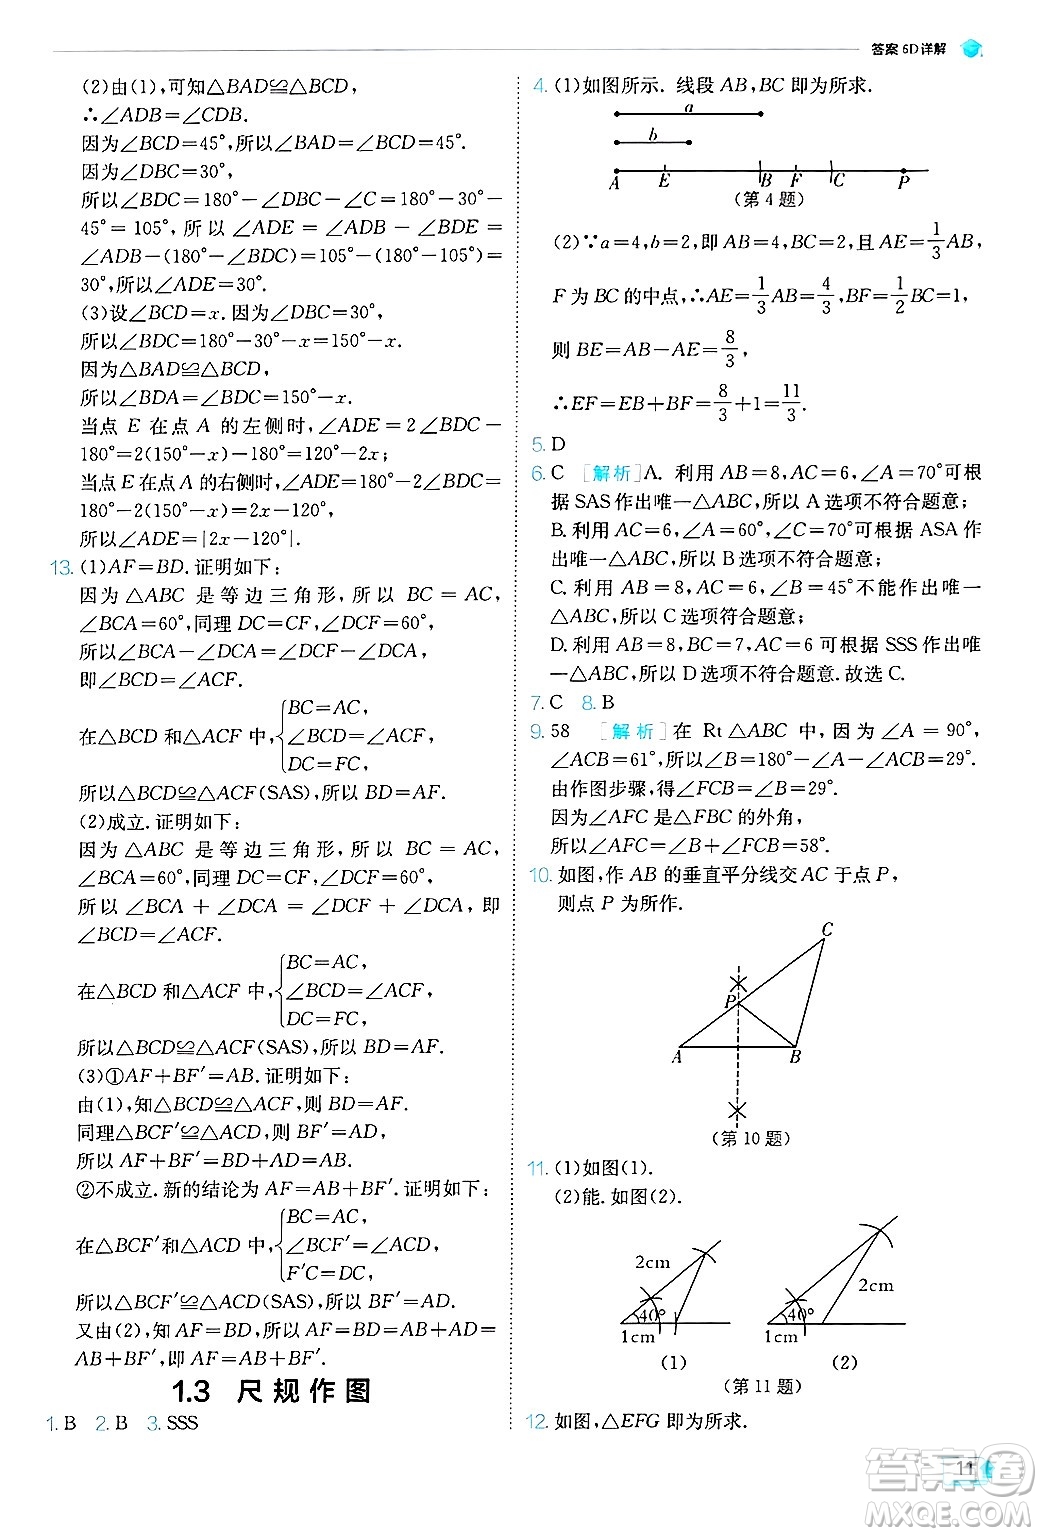 答案 6D详解
(2)由(1),可知△BAD≌△BCD,
∴∠ADB=∠CDB.
因为∠BCD=45°,所以∠BAD=∠BCD=45°.
因为∠DBC=30°,
所以∠BDC=180°-∠DBC-∠C=180°-30°-
45°=105°,所以∠ADE=∠ADB-∠BDE=
∠ADB-(180°-∠BDC)=105°-(180°-105°)=
30°,所以∠ADE=30°.
(3)设∠BCD=x.因为∠DBC=30°,
所以∠BDC=180°-30°-x=150°-x.
因为△BAD≌△BCD,
所以∠BDA=∠BDC=150°-x.
当点 E 在点 A 的左侧时,∠ADE=2∠BDC-
180°=2(150°-x)-180°=120°-2x;
当点 E 在点 A 的右侧时,∠ADE=180°-2∠BDC=
180°-2(150°-x)=2x-120°.
所以∠ADE=|2x-120°|.
13. (1)AF=BD.证明如下:
因为△ABC 是等边三角形,所以 BC=AC,
∠BCA=60°,同理 DC=CF,∠DCF=60°,
所以∠BCA-∠DCA=∠DCF-∠DCA,
即∠BCD=∠ACF.
BC=AC,
在△BCD 和△ACF 中,∠BCD=∠ACF,
DC=FC,
所以△BCD≌△ACF(SAS),所以 BD=AF.
(2)成立.证明如下:
因为△ABC 是等边三角形,所以 BC=AC,
∠BCA=60°,同理 DC=CF,∠DCF=60°,
所以∠BCA+∠DCA=∠DCF+∠DCA,即
∠BCD=∠ACF.
BC=AC,
在△BCD 和△ACF 中,∠BCD=∠ACF,
DC=FC,
所以△BCD≌△ACF(SAS),所以 BD=AF.
(3)①AF+BF′=AB.证明如下:
由(1),知△BCD≌△ACF,则 BD=AF.
同理△BCF′≌△ACD,则 BF′=AD,
所以 AF+BF′=BD+AD=AB.
②不成立.新的结论为 AF=AB+BF′.证明如下:
BC=AC,
在△BCF′和△ACD 中,∠BCF′=∠ACD,
F′C=DC,
所以△BCF′≌△ACD(SAS),所以 BF′=AD.
又由(2),知 AF=BD,所以 AF=BD=AB+AD=
AB+BF′,即 AF=AB+BF′.
1.3 尺规作图
1. B 2. B 3. SSS
4. (1)如图所示.线段 AB,BC 即为所求.
a
b
A E B F C P
(第 4 题)
(2)∵a=4,b=2,即 AB=4,BC=2,且 AE=1/3AB,
F 为 BC 的中点,∴AE=1/3AB=4/3,BF=1/2BC=1,
则 BE=AB-AE=8/3,
∴EF=EB+BF=8/3+1=11/3.
5. D
6. C [解析]A.利用 AB=8,AC=6,∠A=70°可根
据 SAS 作出唯一△ABC,所以 A 选项不符合题意;
B.利用 AC=6,∠A=60°,∠C=70°可根据 ASA 作
出唯一△ABC,所以 B 选项不符合题意;
C.利用 AB=8,AC=6,∠B=45°不能作出唯一
△ABC,所以 C 选项符合题意;
D.利用 AB=8,BC=7,AC=6 可根据 SSS 作出唯
一△ABC,所以 D 选项不符合题意.故选 C.
7. C 8. B
9. 58 [解析]在 Rt△ABC 中,因为∠A=90°,
∠ACB=61°,所以∠B=180°-∠A-∠ACB=29°.
由作图步骤,得∠FCB=∠B=29°.
因为∠AFC 是△FBC 的外角,
所以∠AFC=∠B+∠FCB=58°.
10. 如图,作 AB 的垂直平分线交 AC 于点 P,
则点 P 为所作.
C
P
A B
(第 10 题)
11. (1)如图(1).
(2)能.如图(2).
2cm
40°
1cm
(1)
2cm
40°
1cm
(2)
(第 11 题)
12. 如图,△EFG 即为所求.
11
答案圈
MXQE.COM